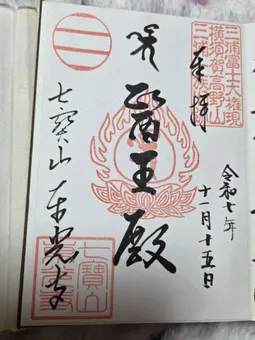 三浦富士大権現
横須賀高野山
三浦
奉拝
令和七年
十一月十五日
醫王殿
七寶山 東光寺
七寶山